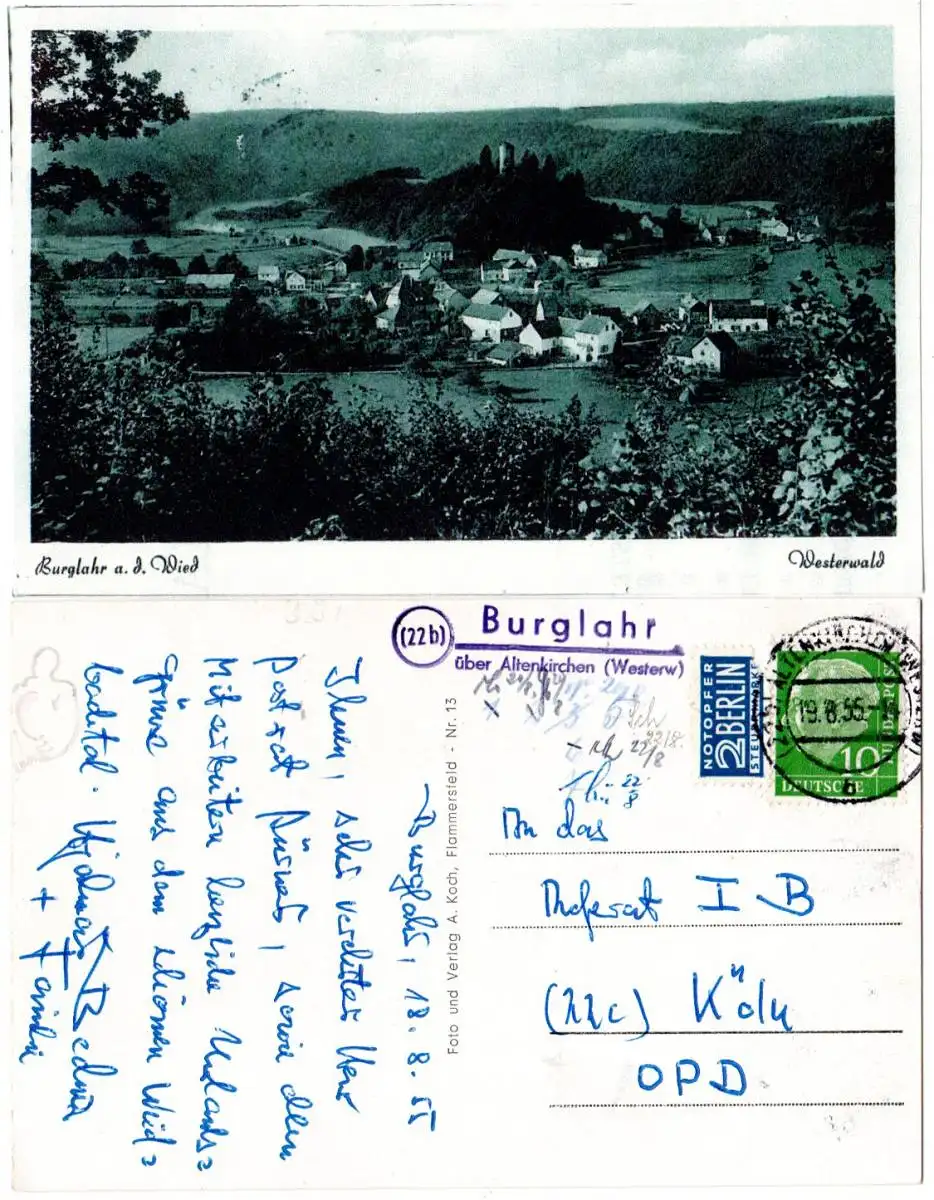 Burglahr a. d. Wied
Westerwald
(22b)
Burglahr
über Altenkirchen (Westerw)
NOTOPFER
2 BERLIN
STEUERMARKE
19.8.55
10
DEUTSCHE
BUNDESPOST
22/8
22/8
22/8
An das
Referat I B
(22c) Köln
OPD
Foto und Verlag A. Koch, Flammersfeld - Nr. 13
Burglahr, 18. 8. 55
Ihnen, sehr verehrter Herr
Postrat, sowie den
Mitarbeitern herzliche Urlaubs=
grüsse aus dem schönen Wied=
bachtal.
+ Familie